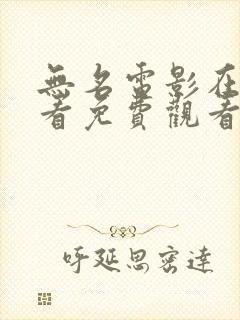 無名電影在
看免費觀看
呼延思密達